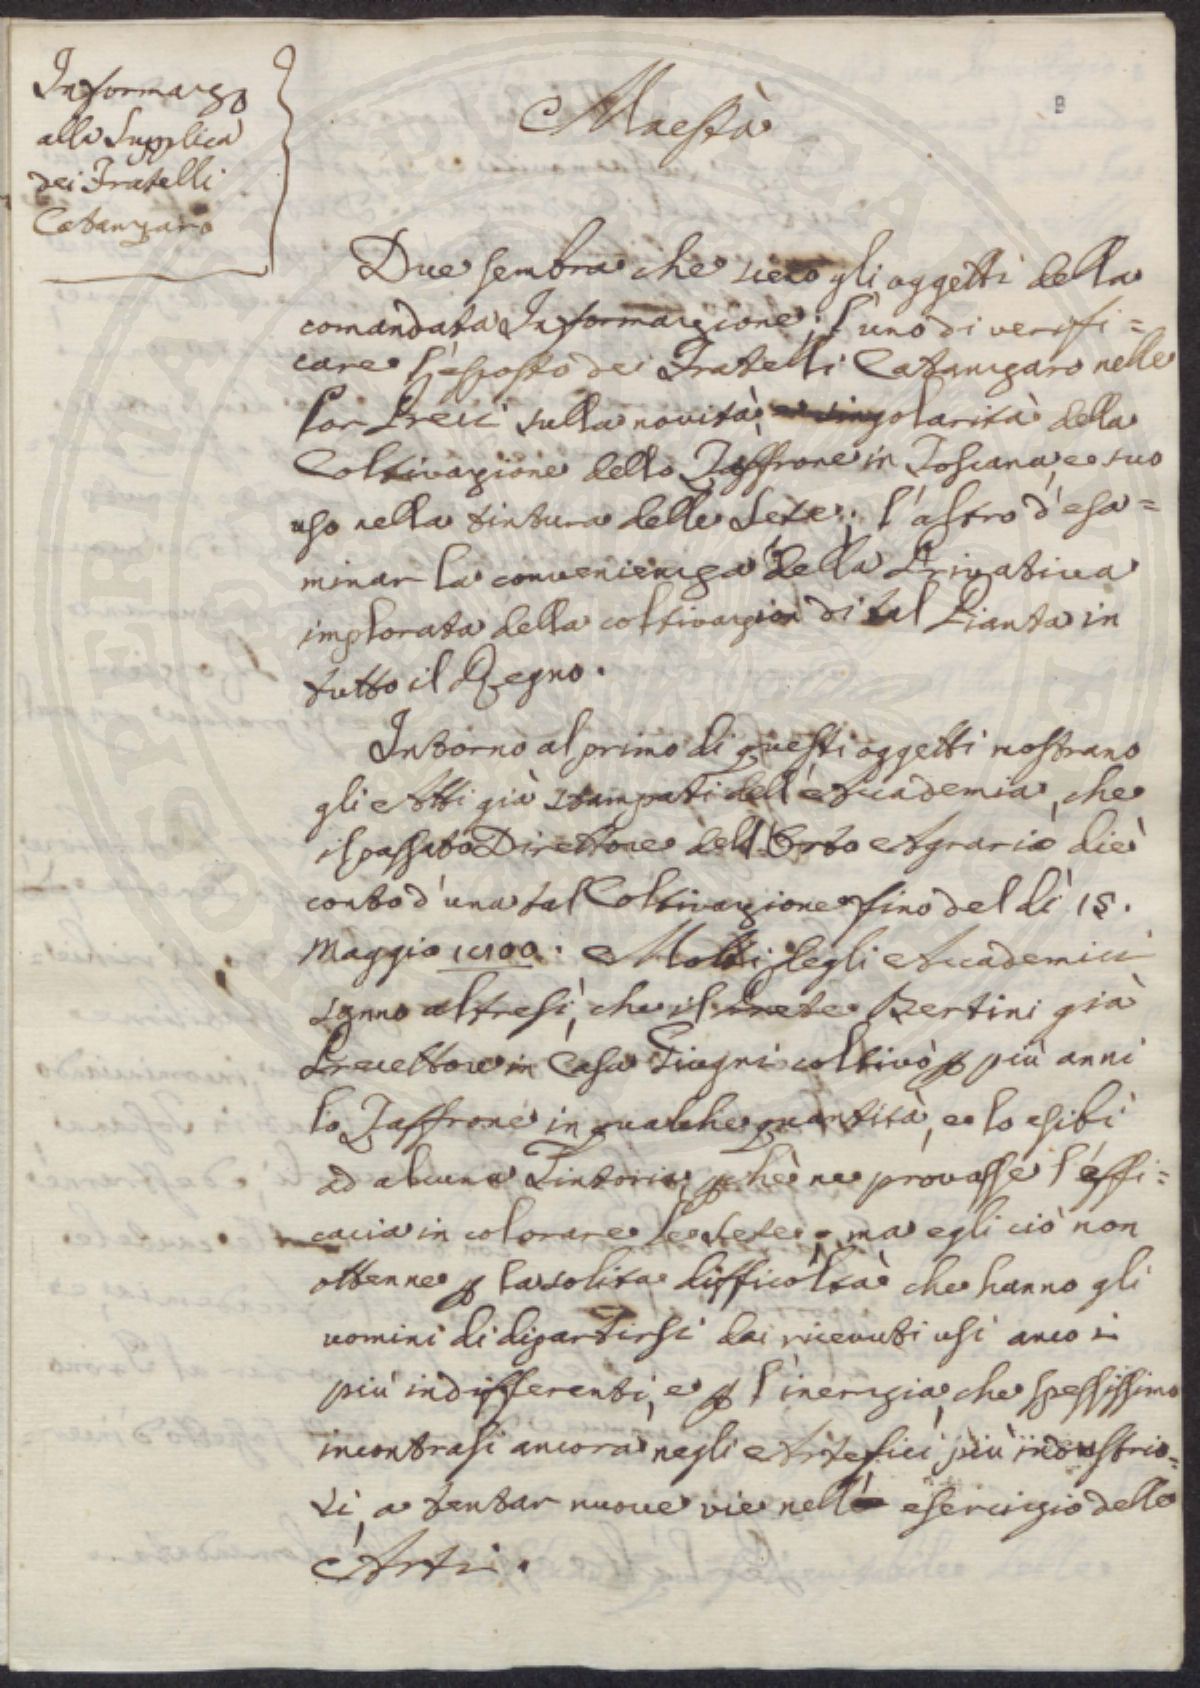 Informazo
alla Supplica
dei Fratelli
Catanzaro
Maestà
Due sembra che sieno gli oggetti della
comandata Informazione; l'uno di verifi=
care l'esposto dei Fratelli Catanzaro nelle
lor Preci sulla novità, e singolarità della
Coltivazione dello Zaffrone in Toscana, e suo
uso nella tintura delle Sete; l'altro d'esa=
minar la convenienza della Privativa
implorata della coltivazion di tal Pianta in
tutto il Regno.
Intorno al primo di questi oggetti mostrano
gli Atti già stampati dell'Accademia, che
il passato Direttore dell'Orto Agrario diè
conto d'una tal Coltivazione fino del dì 15.
Maggio. Molti degli Accademici
sanno altresì, che il Prete Bertini già
Precettore in Casa Giugni coltivò p più anni
lo Zaffrone in qualche quantità, e lo esibì
ad alcune Tintorie, pchè ne provasse l'effi=
cacia in colorare le sete; ma egli ciò non
ottenne p la solita difficoltà che hanno gli
uomini di dipartirsi dai ricevuti usi anco i
più indifferenti, e p l'inerzia, che spessissimo
incontrasi ancora negli Artefici più industrio=
si, a tentar nuove vie nell' esercizio delle
Arti.